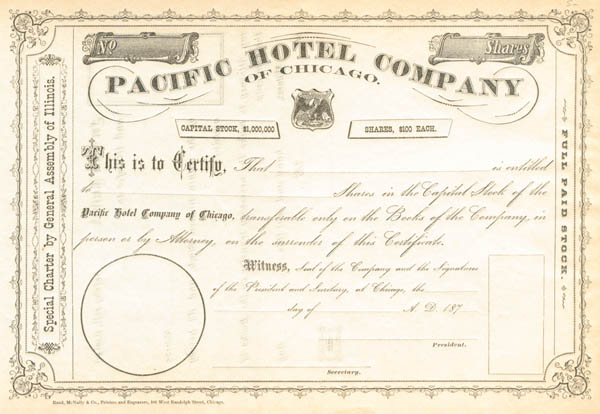 No
Shares
PACIFIC HOTEL COMPANY
OF CHICAGO.
CAPITAL STOCK, $1,000,000
SHARES, $100 EACH.
Special Charter by General Assembly of Illinois.
FULL PAID STOCK.
This is to Certify, That is entitled
to Shares in the Capital Stock of the
Pacific Hotel Company of Chicago, transferable only on the Books of the Company, in
person or by Attorney, on the surrender of this Certificate.
Witness, Seal of the Company and the Signatures
of the President and Secretary, at Chicago, the
day of A. D. 187
President.
Secretary.
Rand, McNally & Co., Printers and Engravers, Randolph Street, Chicago.